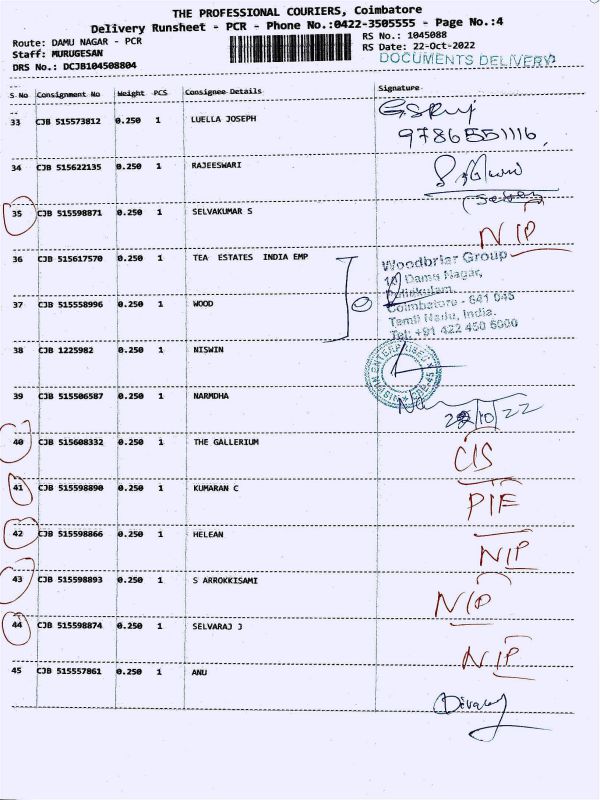 THE PROFESSIONAL COURIERS, Coimbatore
Delivery Runsheet - PCR - Phone No.:0422-3505555 - Page No.:4
Route: DAMU NAGAR - PCR
RS No.: 1045088
Staff: MURUGESAN
RS Date: 22-Oct-2022
DRS No.: DCJB104508804
DOCUMENTS DELIVERY
S No Consignment No Weight PCS Consignee Details Signature
33 CJB 515573812 0.250 1 LUELLA JOSEPH
9786551116
34 CJB 515622135 0.250 1 RAJEESWARI
35 CJB 515598871 0.250 1 SELVAKUMAR S NIP
36 CJB 515617570 0.250 1 TEA ESTATES INDIA EMP
Woodbriar Group
Damu Nagar,
Puliakulam,
37 CJB 515558996 0.250 1 WOOD
Coimbatore - 641 045
Tamil Nadu, India.
Tel: +91 422 450 6000
38 CJB 1225982 0.250 1 NISWIN
39 CJB 515506587 0.250 1 NARMDHA
22/10/22
40 CJB 515608332 0.250 1 THE GALLERIUM CIS
41 CJB 515598890 0.250 1 KUMARAN C PIF
42 CJB 515598866 0.250 1 HELEAN NIP
43 CJB 515598893 0.250 1 S ARROKKISAMI NIP
44 CJB 515598874 0.250 1 SELVARAJ J NIP
45 CJB 515557861 0.250 1 ANU